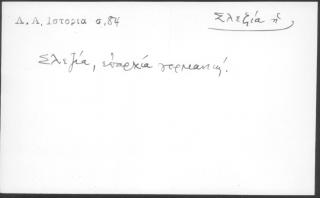 Δ.Α. Ιστορια σ.84
Σλεζία ἡ
Σλεζία, ἐπαρχία γερμανική.